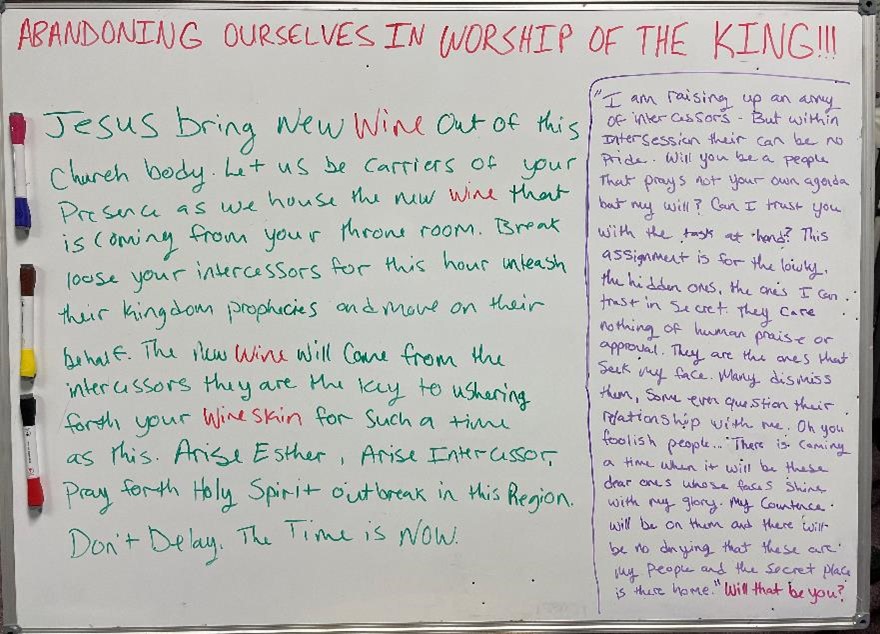 ABANDONING OURSELVES IN WORSHIP OF THE KING!!!
Jesus bring New Wine Out of this
Church body. Let us be Carriers of your
Presence as we house the new wine that
is coming from your throne room. Break
loose your intercessors for this hour unleash
their kingdom prophecies and move on their
behalf. The New Wine will Come from the
intercessors they are the key to ushering
forth your Wineskin for Such a time
as this. Arise Esther, Arise Intercessor,
Pray forth Holy Spirit outbreak in this Region.
Don't Delay. The Time is NOW.
"I am raising up an army
of intercessors - But within
Intersession their can be no
Pride. Will you be a people
That prays not your own agenda
but my will? Can I trust you
with the task at hand? This
assignment is for the lowly,
the hidden ones, the ones I can
trust in secret. They care
nothing of human praise or
approval. They are the ones that
Seek my face. Many dismiss
them, Some even question their
relationship with me. Oh you
foolish people... There is coming
a time when it will be these
dear ones whose faces shine
with my glory. My Countence
will be on them and there will
be no denying that these are
my people and the secret place
is there home." Will that be you?